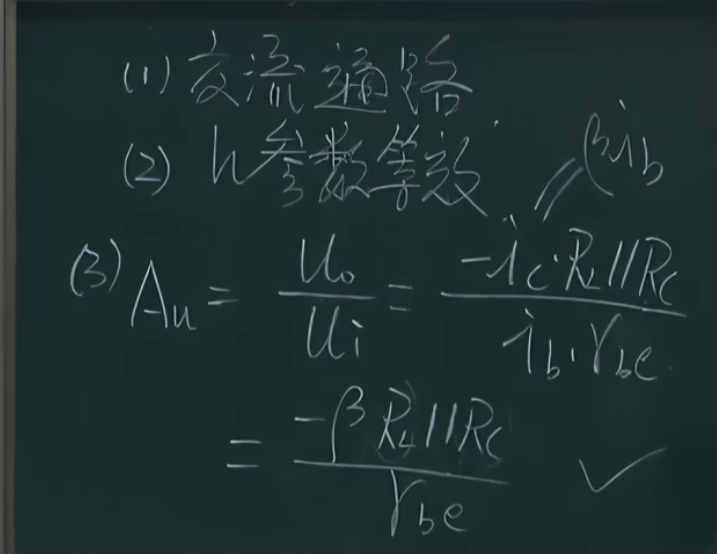 (1) 交流通路
(2) h参数等效
βib
(3) Au = Uo / Ui = -ic·RL//Rc / ib·rbe
= -βRL//Rc / rbe ✓